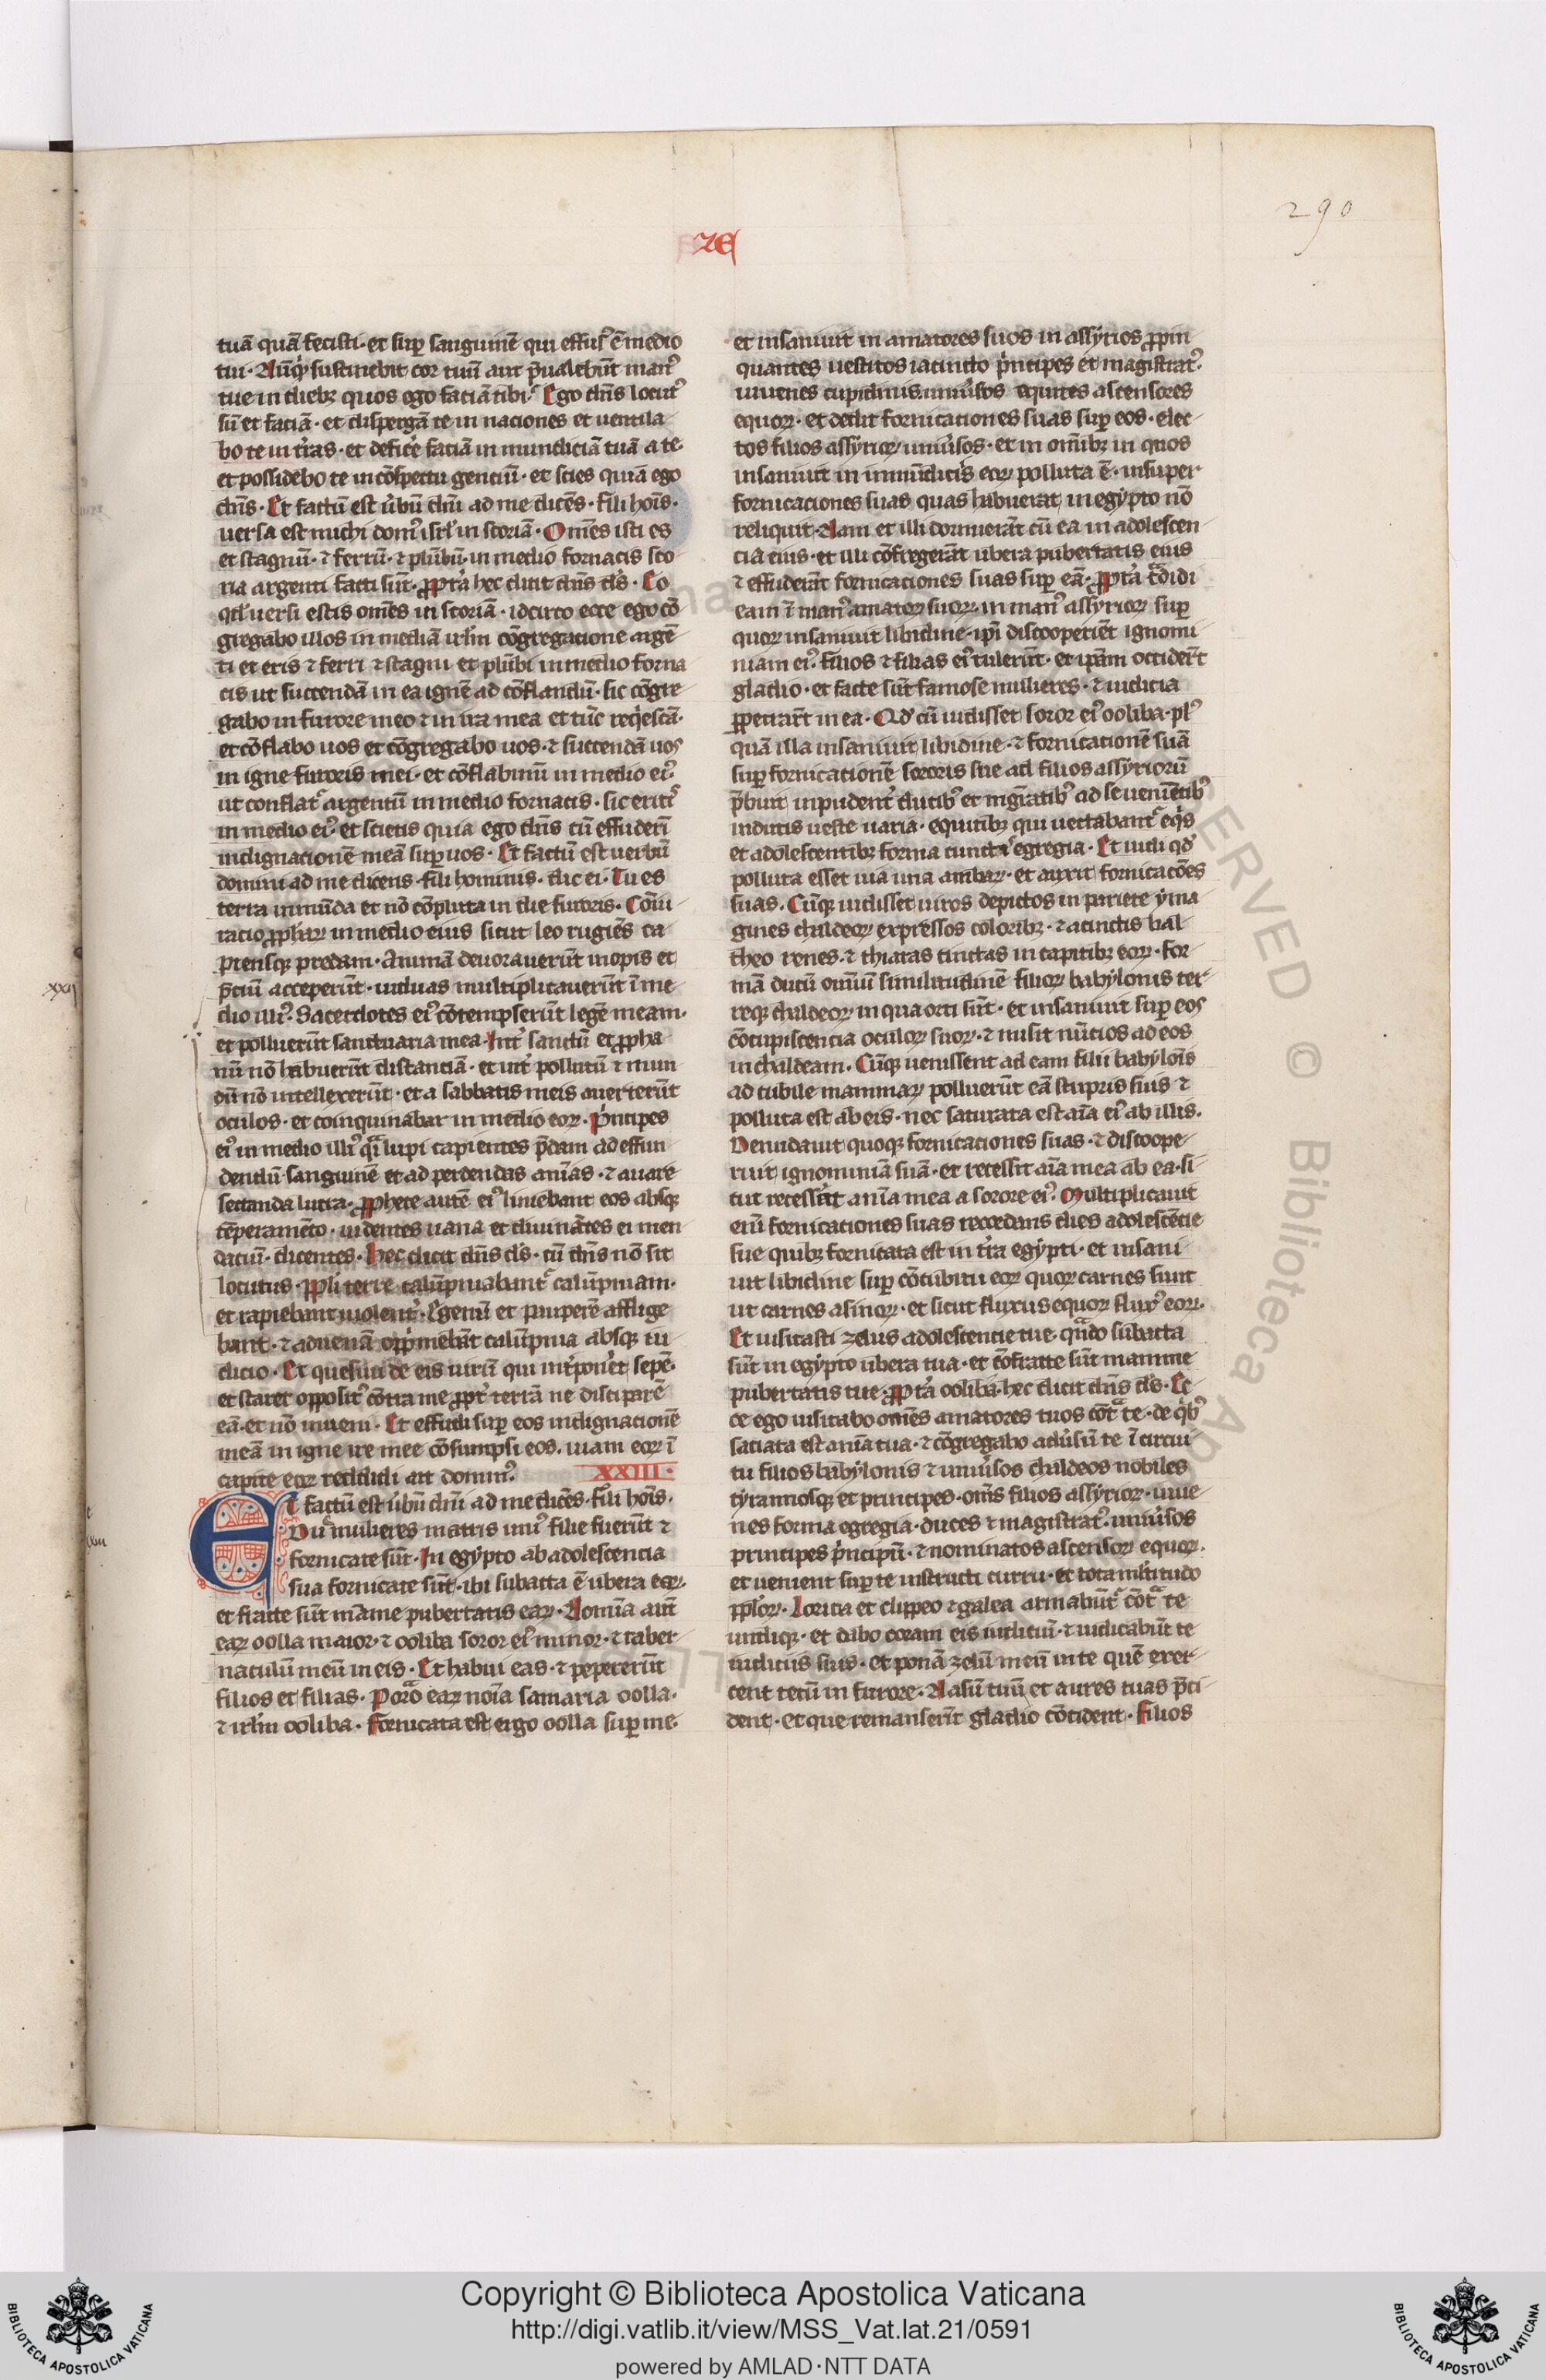 290
ZE
tuā quā fecisti · et suꝑ sanguinē qui effusꝰ ē medio
tui · Nūqͥd sustinebit cor tuū aut p̄ualebūt manꝰ
tue in diebꝫ quos ego faciā tibi · Ego dn̄s locutꝰ
sū et faciā · et dispergā te in naciones et uentila
bo te in t̓ras · et defic̓e faciā inmundiciā tuā a te ·
et possidebo te in cōspectu genciū · et scies quia ego
dn̄s · Et factū est ūbū dn̄i ad me dicēs · fili hoīs ·
uersa est michi domꝰ isrl̓ in scoriā · Omēs isti es
et stagnū · ⁊ ferrū · ⁊ plūbū · in medio fornacis sco
ria argenti facti sūt · ꝓpt̓a hec dicit dn̄s d̓s · Eo
qd̓ uersi estis omēs in scoriā · idcirco ecce ego cō
gregabo uos in mediā irl̓m cōgregacione argē
ti et eris ⁊ ferri ⁊ stagni et plūbi in medio forna
cis ut succendā in ea ignē ad cōflandū · sic cōgre
gabo in furore meo ⁊ in ira mea et tūc reqͥescā ·
et cōflabo uos et cōgregabo uos · ⁊ succendā uos
in igne furoris mei · et cōflabimī in medio eiꝰ ·
ut conflat᷑ argentū in medio fornacis · sic eritꝭ
in medio eiꝰ · et scietis quia ego dn̄s cū effuderī
indignacionē meā suꝑ uos · Et factū est uerbū
domini ad me dicens · fili hominis · dic ei · Tu es
terra inmūda et nō cōpluta in die furoris · Cōiu
racio ꝓphaꝝ in medio eius sicut leo rugiēs ca
piensqꝫ predam · Animā deuorauerūt inopis et
p̄ciū acceperūt · uiduas multiplicauerūt ī me
dio illiꝰ · Sacerdotes eiꝰ cōtempserūt legē meam ·
et polluerūt sanctuaria mea · Int̓ sanctū et ꝓpha
nū nō habuerūt distanciā · et int̓ pollutū ⁊ mun
dū nō intellexerūt · et a sabbatis meis auerterūt
oculos · et coinquinabar in medio eoꝝ · pͥncipes
eiꝰ in medio illiꝰ qͣi lupi rapientes p̄dam ad effun
dendū sanguinē et ad perdendas anīas · ⁊ auare
sectanda lucra · ꝓphete autē eiꝰ liniebant eos absqꝫ
tēperamēto · uidentes uana et diuinātes ei men
daciū · dicentes · Hec dicit dn̄s d̓s · cū dn̄s nō sit
locutus · Ppli terre calūpniabant᷑ calūpniam ·
et rapiebant uiolent̓ · Egenū et pauperē afflige
bant · ⁊ aduenā opp̓mebāt calūpnia absqꝫ iu
dicio · Et quesiui de eis uirū qui int̓pon̓et sepē ·
et staret oppositꝰ cōtra me ꝓpt̓ terrā ne disciparē
eā · et nō inueni · Et effudi suꝑ eos indignacionē
meā in igne ire mee cōsumpsi eos · uiam eoꝝ ī
capite eoꝝ reddidi ait dominꝰ · XXIII ·
Et factū est ūbū dn̄i ad me dicēs · fili hoīs ·
Due mulieres matris uniꝰ filie fuerūt ⁊
fornicate sūt · In egypto ab adolescencia
sua fornicate sūt · ibi subacta ē ubera eaꝝ ·
et fracte sūt māme pubertatis eaꝝ · Nomīa aūt
eaꝝ oolla maior · ⁊ ooliba soror eiꝰ minor · ⁊ taber
naculū meū in eis · Et habui eas · ⁊ pepererūt
filios et filias · Porͦ eaꝝ noīa samaria oolla ·
⁊ irl̓m ooliba · Fornicata est ergo oolla suꝑ me ·
et insaniuit in amatores suos in assyrios ꝓpin
quantes uestitos iacincto pͥncipes et magistratꝰ ·
iuuenes cupidinis · uniūsos equites ascensores
equoꝝ · et dedit fornicationes suas suꝑ eos · elec
tos filios assyrioꝝ uniūsos · et in omībꝫ in quos
insaniuit in inmūdiciis eoꝝ polluta ē · insuper
fornicaciones suas quas habuerat in egypto nō
reliquit · Nam et illi dormierāt cū ea in adolescen
cia eius · et illi cōfregerāt ubera pubertatis eius
⁊ effuderāt fornicaciones suas suꝑ eā · ꝓpt̓a tͣdidi
eam ī manꝰ amatoꝝ suoꝝ · in manꝰ assyrioꝝ suꝑ
quoꝝ insaniuit libidine · ip̄i discooperiēt ignomi
niam eiꝰ · filios ⁊ filias eiꝰ tulerūt · et ipām occiderūt
gladio · et facte sūt famose mulieres · ⁊ iudicia
ꝑpetrarūt in ea · Qd̓ cū uidisset soror eiꝰ ooliba · plꝰ
quā illa insaniuit libidine · ⁊ fornicationē suā
suꝑ fornicationē sororis sue ad filios assyriorū
p̄buit inpudent̓ ducibꝰ et mgr̄atibꝰ ad se ueniētibꝰ
indutis ueste uaria · equitibꝫ qui uectabant᷑ eqͥs
et adolescentibꝫ forma cunctꝭ egregia · Et uidi qd̓
polluta esset uia una ambaꝝ · et auxit fornicacōes
suas · Cūqꝫ uidisset uiros depictos in pariete yma
gines chaldeoꝝ expressos coloribꝫ · ⁊ acinctis bal
theo renes · ⁊ thiaras tinctas in capitibꝫ eoꝝ · for
mā ducū omīū similitudinē filioꝝ babylonis ter
reqꝫ chaldeoꝝ in qua orti sūt · et insaniuit suꝑ eos
cōcupiscencia oculoꝝ suoꝝ · ⁊ misit nūcios ad eos
in chaldeam · Cūqꝫ uenissent ad eam filii babylōis
ad cubile mammaꝝ polluerūt eā stupris suis ⁊
polluta est ab eis · nec saturata est aīa eiꝰ ab illis ·
Denudauit quoqꝫ fornicaciones suas · ⁊ discoope
ruit ignominiā suā · et recessit aīa mea ab ea · si
cut recess̓at anīa mea a sorore eiꝰ · Multiplicauit
enī fornicationes suas recordans dies adolescēcie
sue quibꝫ fornicata est in t̓ra egypti · et insani
uit libidine suꝑ cōcubitu eoꝝ quoꝝ carnes sunt
ut carnes asinoꝝ · et sicut fluxus equoꝝ fluxꝰ eoꝝ ·
Et uisitasti zelus adolescentie tue qͣndo subacta
sūt in egypto ubera tua · et cōfracte sūt mamme
pubertatis tue · ꝓpt̓a ooliba · hec dicit dn̄s d̓s · Ec
ce ego uisitabo omēs amatores tuos cōtͣ te · de qͥbꝰ
saciata est anīa tua · ⁊ cōgregabo adūsū te ī circui
tu filios babylonis ⁊ uniūsos chaldeos nobiles
tyrannosqꝫ et principes · omīs filios assyrioꝝ · iuue
nes forma egregia · duces ⁊ magistratꝰ · uniūsos
principes pͥncipū · ⁊ nominatos ascensoꝝ equoꝝ ·
et uenient suꝑ te instructi curru · et rota multitudo
pploꝝ · Lorica et clippeo ⁊ galea armabūt᷑ cōtͣ te
undiqꝫ · et dabo coram eis iudiciū · ⁊ iudicabūt te
iudiciis suis · et ponā zelū meū in te quē exer
cent tecū in furore · Nasū tuū et aures tuas p̄ci
dent · et que remanserīt gladio cōcident · Filios
xxij
Copyright © Biblioteca Apostolica Vaticana
http://digi.vatlib.it/view/MSS_Vat.lat.21/0591
powered by AMLAD·NTT DATA
BIBLIOTECA APOSTOLICA VATICANA
BIBLIOTECA APOSTOLICA VATICANA